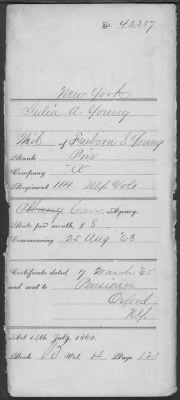 No. 42237
New York
Julia A Young
Wid of Freeborn S Young
Rank Priv
Company "A"
Regiment 114 N.Y. Vols
Albany Agency.
Rate per month, $8
Commencing 25 Aug '63
Certificate dated 7 March '65
and sent to Pensioner
Oxford
N.Y.
Act 14th July, 1862.
Book B Vol. H Page 121